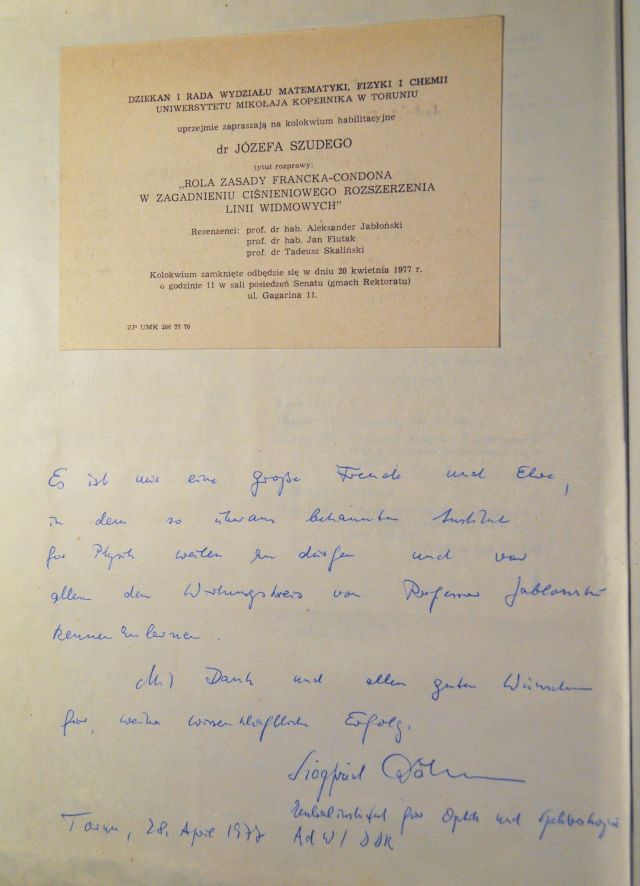 DZIEKAN I RADA WYDZIAŁU MATEMATYKI, FIZYKI I CHEMII
UNIWERSYTETU MIKOŁAJA KOPERNIKA W TORUNIU
uprzejmie zapraszają na kolokwium habilitacyjne
dr JÓZEFA SZUDEGO
tytuł rozprawy:
„ROLA ZASADY FRANCKA-CONDONA
W ZAGADNIENIU CIŚNIENIOWEGO ROZSZERZENIA
LINII WIDMOWYCH”
Rezenzenci: prof. dr hab. Aleksander Jabłoński
prof. dr hab. Jan Fiutak
prof. dr Tadeusz Skaliński
Kolokwium zamknięte odbędzie się w dniu 20 kwietnia 1977 r.
o godzinie 11 w sali posiedzeń Senatu (gmach Rektoratu)
ul. Gagarina 11.
ZP UMK 206 77 70
Es ist mir eine große Freude und Ehre,
in dem so überaus bekannten Institut
für Physik weilen zu dürfen und vor
allem den Wirkungskreis von Professor Jabłoński
kennenzulernen.
Mit Dank und allen guten Wünschen
für weitere wissenschaftliche Erfolge.
Siegfried
Zentralinstitut für Optik und Spektroskopie
Torun, 28. April 1977 AdW / DDR